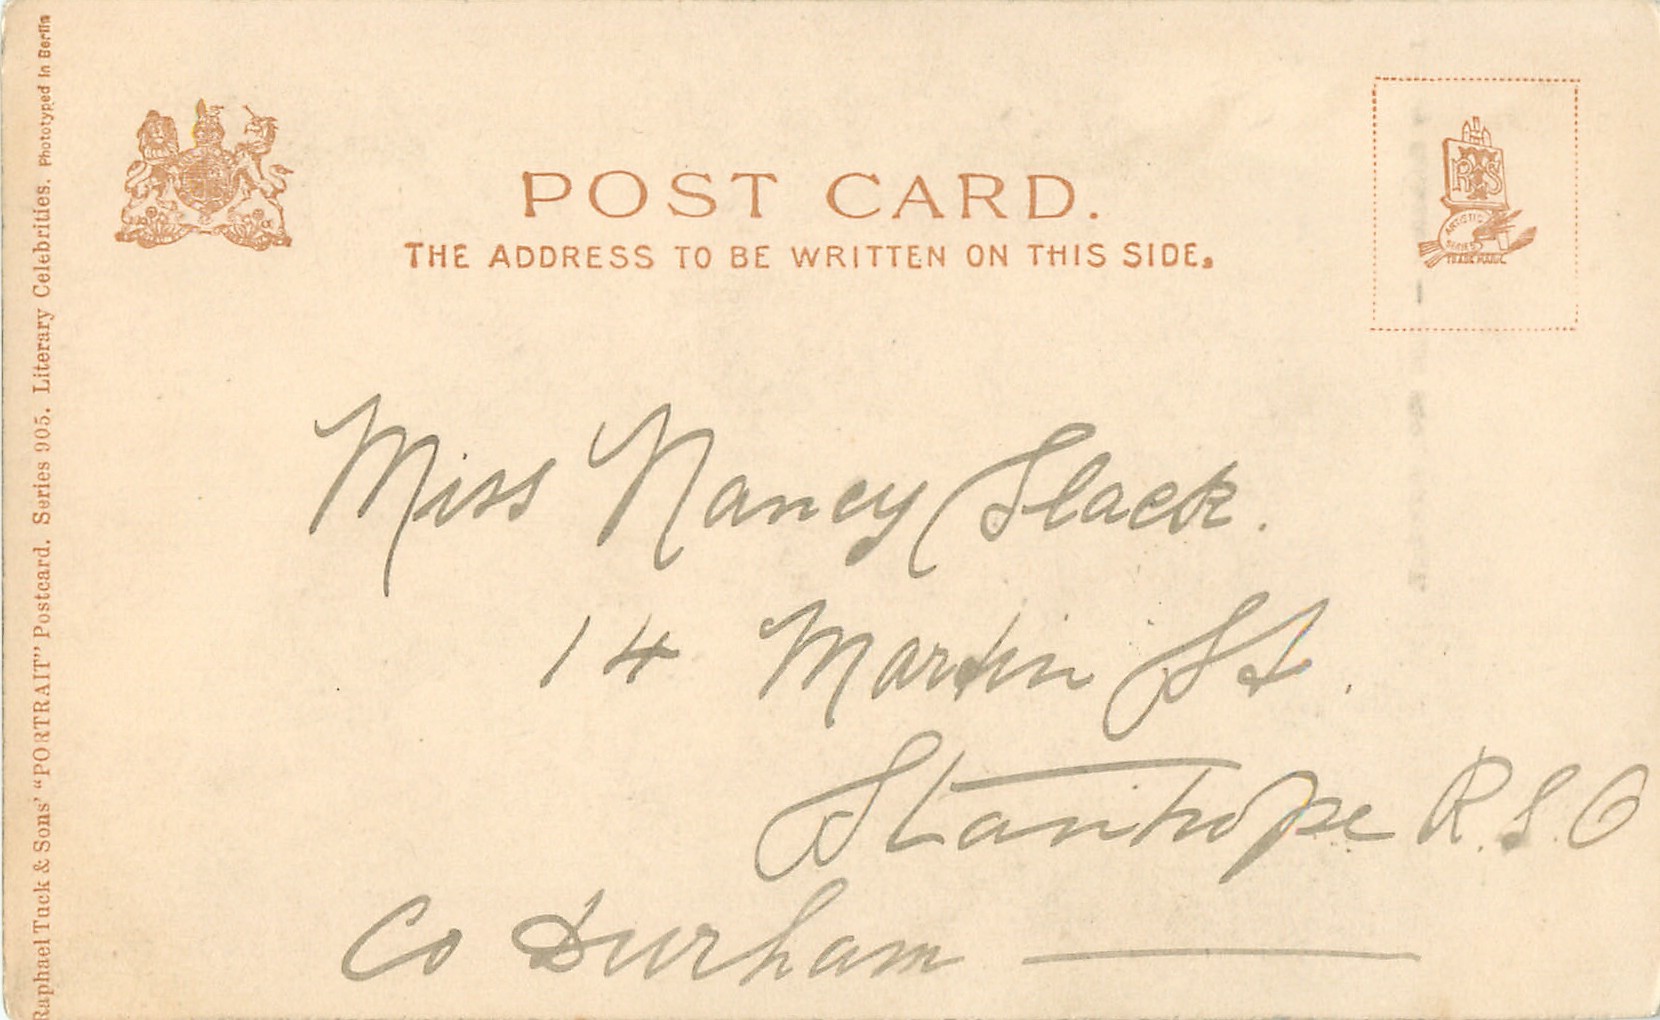 POST CARD.
THE ADDRESS TO BE WRITTEN ON THIS SIDE.
RTS
ARTISTIC
SERIES
TRADE MARK
Miss Nancy Slack.
14 Martin St.
Stanhope R.S.O
Co Durham
Raphael Tuck & Sons' "PORTRAIT" Postcard. Series 905. Literary Celebrities. Phototyped in Berlin